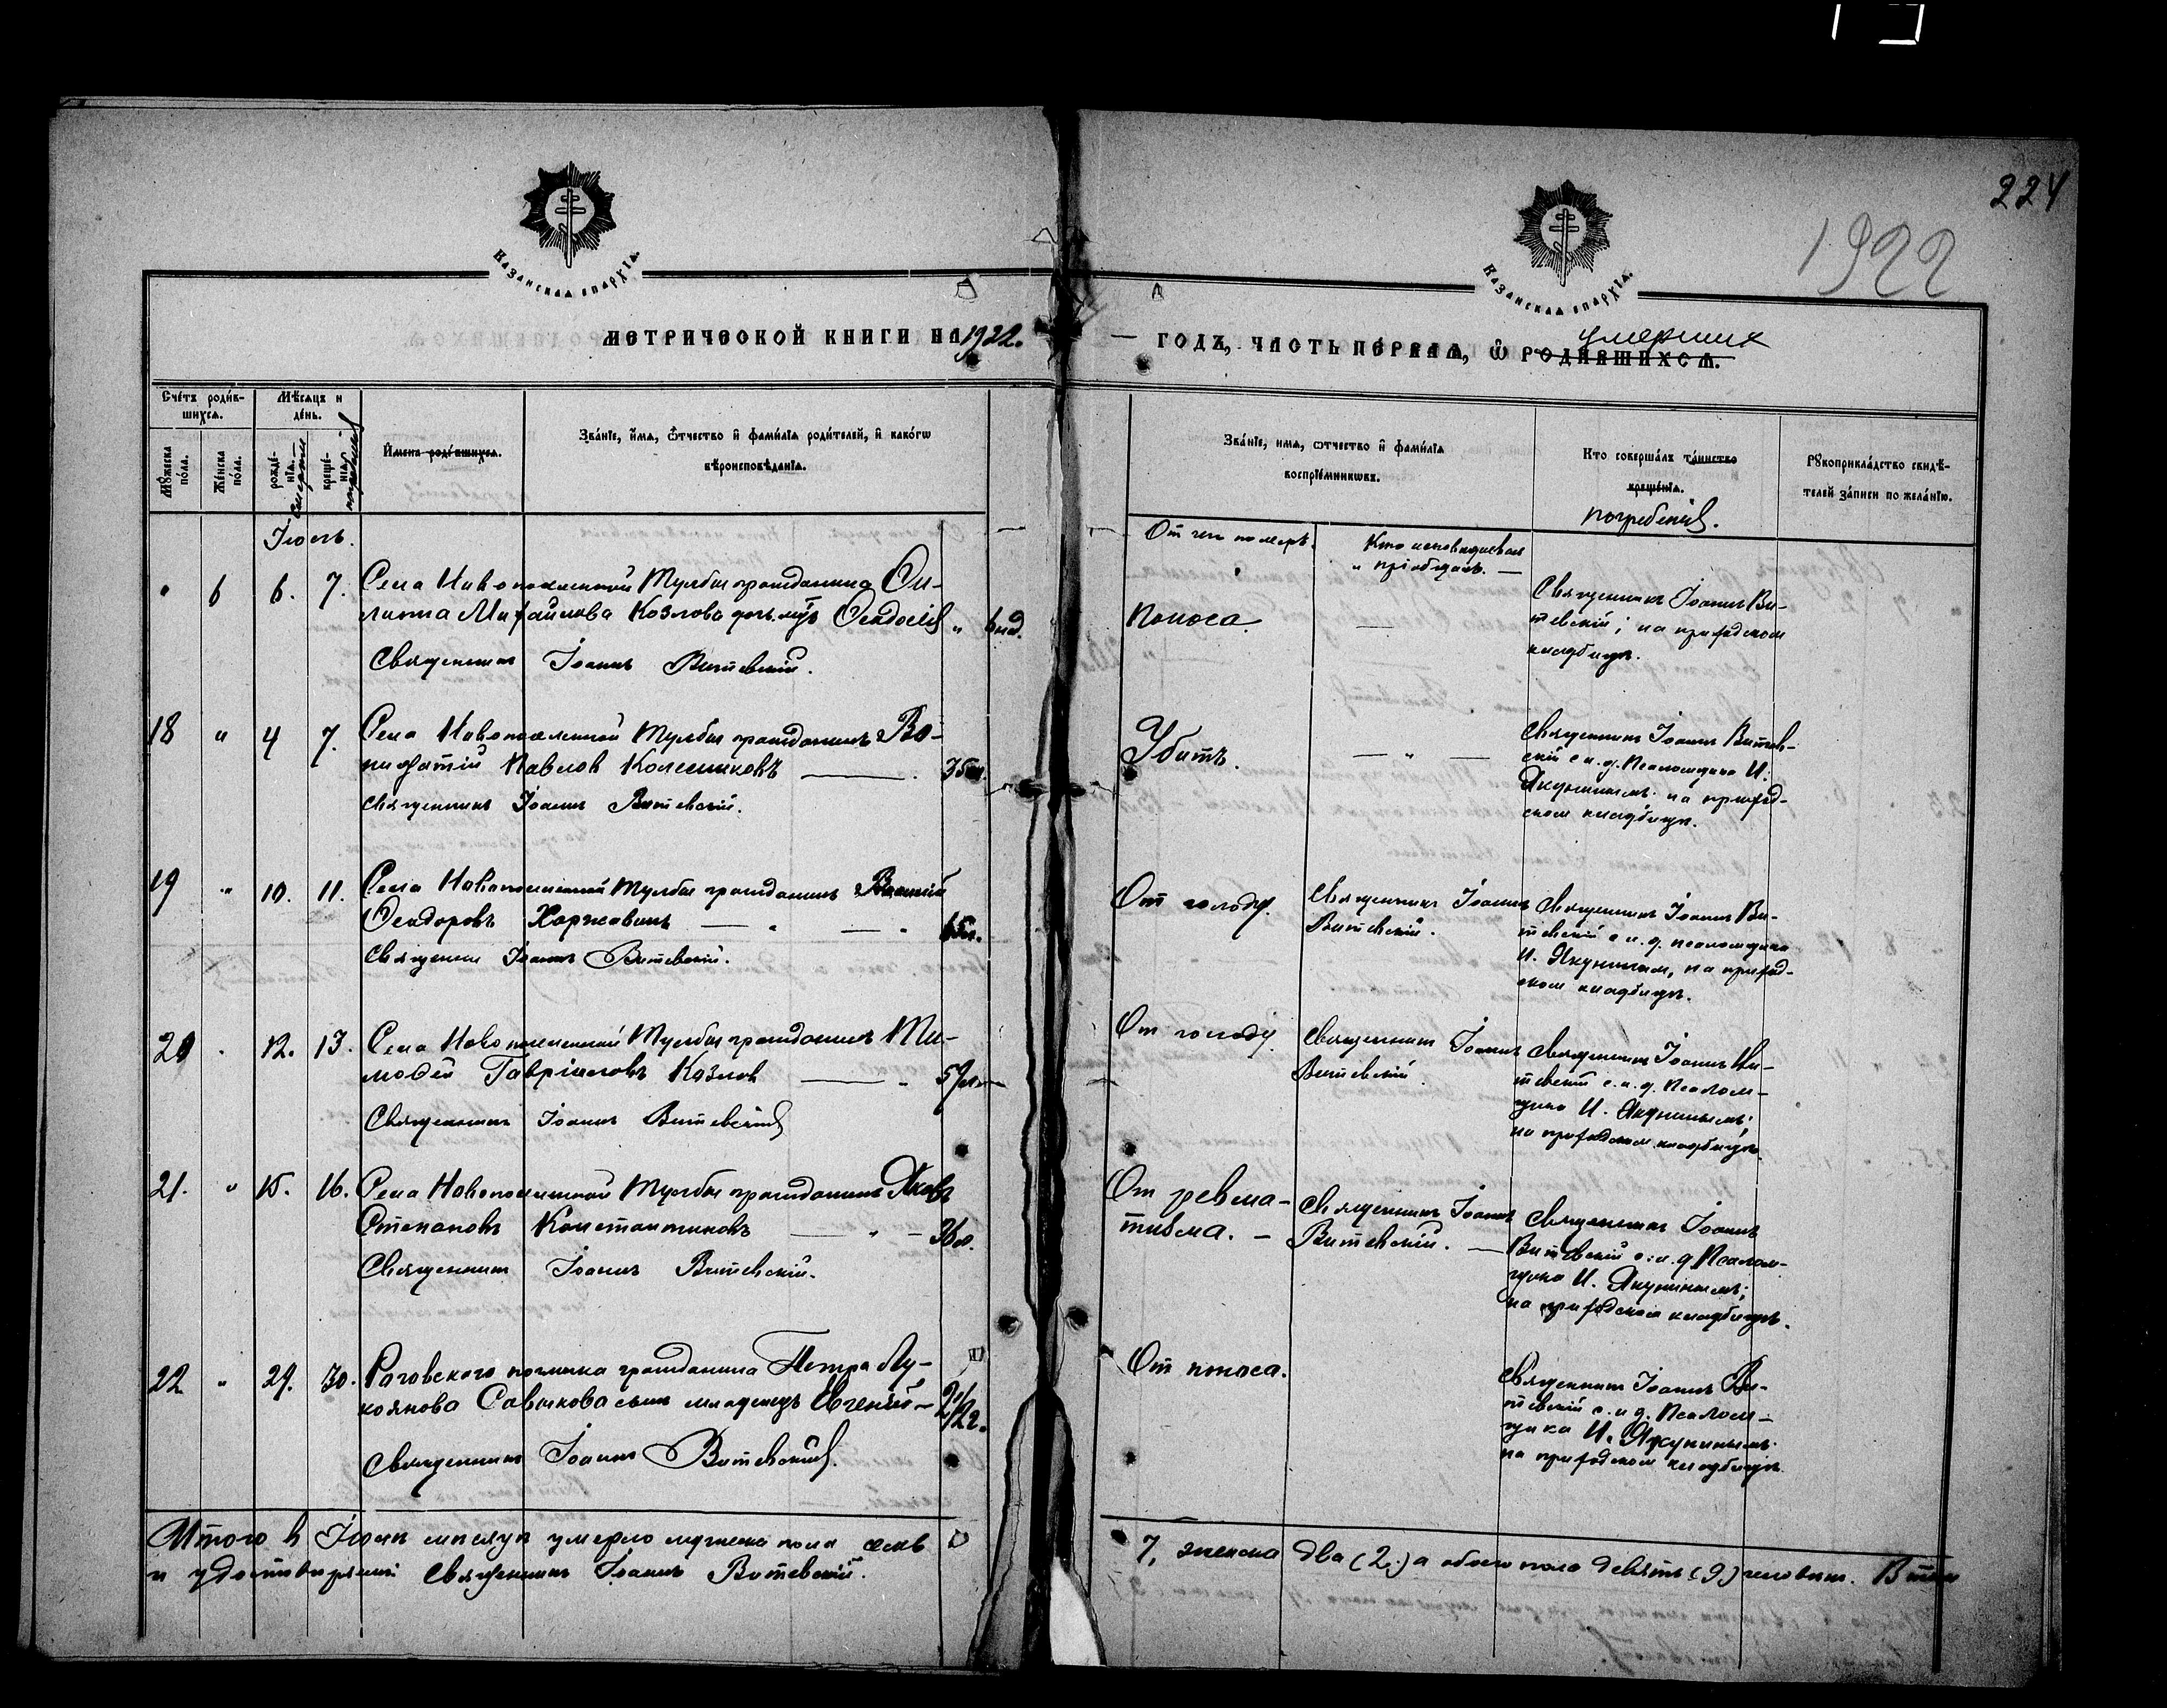 224
1922
Казанская епархїа.
Казанская епархїа.
МЕТРИЧЕСКОЙ КНИГИ НА 1922.
ГОДЪ, ЧАСТЬ ПЕРВАЯ, Ѿ РОДИВШИХСЯ.
умерших
Счетъ родив-
шихся.
Мѣсяцъ и
день.
Мужеска
пола.
Женска
пола.
рожде-
нїя.
смерти
креще-
нїя.
погребенія
Имена родившихся.
Званїе, имя, ѿтчество и фамилїя родителей, и какогѡ
вѣроисповѣданїя.
Званїе, имя, ѿтчество и фамилїя
воспрїемникѡвъ.
Кто совершалъ таинство
крещенїя.
погребенія.
Рукоприкладство свидѣ-
телей записи по желанїю.
Іюль.
От чего померъ.
Кто исповѣдывал
и пріобщалъ.
" 6 6. 7. Села Новопоселенной Тулбы гражданина Фи-
липпа Михайлова Козлова дочь млд Феодосія " 6 нед.
Священникъ Іоаннъ Витевскій.
Поноса.
Священникъ Іоаннъ Ви-
тевскій; на приходском
кладбищѣ.
18 " 4 7. Села Новопоселенной Тулбы гражданинъ Во-
нифатій Павлов Колесниковъ 35 л.
Священникъ Іоаннъ Витевскій.
Убитъ.
Священникъ Іоаннъ Витев-
скій с и. д. Псаломщика И.
Якунинымъ на приход-
ском кладбищѣ.
19 " 10. 11. Села Новопоселенной Тулбы гражданинъ Василій
Феодоровъ Харжавинъ 65 л.
Священник Іоаннъ Витевскій.
От голоду.
Священникъ Іоаннъ
Витевскій.
Священникъ Іоаннъ Ви-
тевскій с и. д. псаломщика
И. Якуниным, на приход-
ском кладбищѣ.
20 " 12. 13. Села Новопоселенной Тулбы гражданинъ Ти-
мофей Гавріиловъ Козлов 59 л.
Священникъ Іоаннъ Витевскій
От голоду.
Священникъ Іоаннъ
Витевскій.
Священникъ Іоаннъ Ви-
тевскій с. и. д. Псалом-
щика И. Якунинымъ;
на приходском кладбищѣ.
21. " 15. 16. Села Новопоселенной Тулбы гражданинъ Яковъ
Степановъ Константиновъ 36 л.
Священник Іоаннъ Витевскій.
От ревма-
тизма.
Священникъ Іоаннъ
Витевскій.
Священникъ Іоаннъ
Витевскій с. и. д Псалом-
щика И. Якунинымъ;
на приходском кладбищѣ.
22 " 29. 30. Раговского починка гражданина Петра Лу-
коянова Савинова сынъ младенецъ Евгеній
Священникъ Іоаннъ Витевскій.
От поноса.
Священник Іоаннъ Ви-
тевскій с. и д. Псалом-
щика И. Якунинымъ
на приходском кладбищѣ.
Итого в Іюлѣ мѣсяцѣ умерло мужеска пола семь
7, женска два (2.) а обоего пола девять (9) человѣк. В том
и удостовѣряет Священникъ Іоаннъ Витевскій.